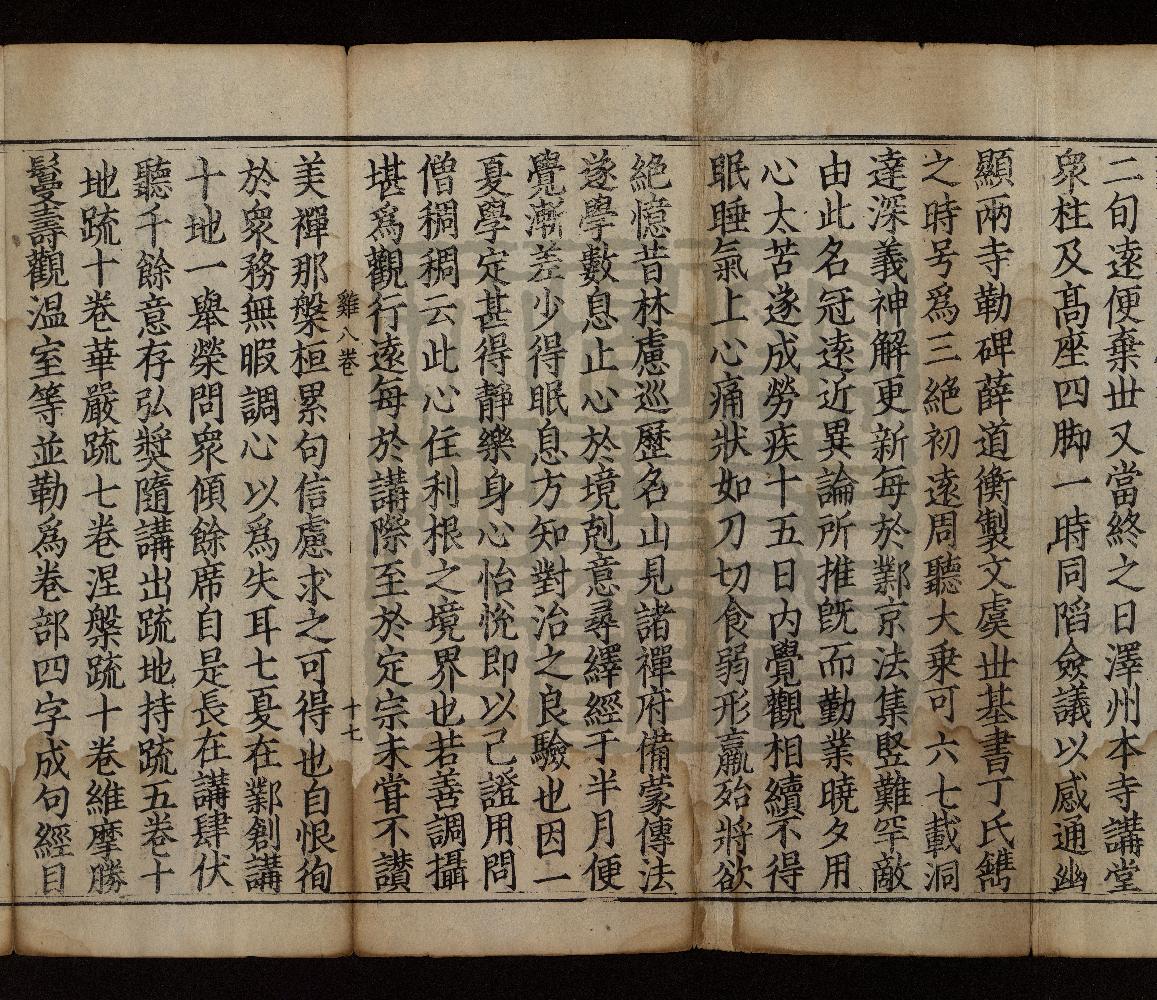 二旬遠便棄丗又當終之日澤州本寺講堂
衆柱及髙座四脚一時同䧟僉議以感通幽
顯兩寺勒碑薛道衡製文虞丗基書丁氏鐫
之時号爲三絶初遠周聽大乗可六七載洞
達深義神解更新每於鄴京法集竪難罕敵
由此名冠遠近異論所推旣而勤業曉夕用
心太苦遂成勞疾十五日内覺觀相續不得
眠睡氣上心痛狀如刀切食弱形羸殆將欲
絶憶昔林慮巡歷名山見諸禪府備蒙傳法
遂學數息止心於境剋意尋繹經于半月便
覺漸差少得眠息方知對治之良驗也因一
夏學定甚得靜樂身心怡恱即以己證用問
僧稠稠云此心住利根之境界也若善調攝
堪爲觀行遠每於講際至於定宗未甞不讃
雞八卷 十七
美禪那槃桓累句信慮求之可得也自恨徇
於衆務無暇調心以爲失耳七夏在鄴創講
十地一舉榮問衆傾餘席自是長在講肆伏
聽千餘意存弘奬隨講出䟽地持䟽五卷十
地䟽十卷華嚴䟽七卷涅槃䟽十卷維摩勝
鬘壽觀温室等並勒爲卷部四字成句經目